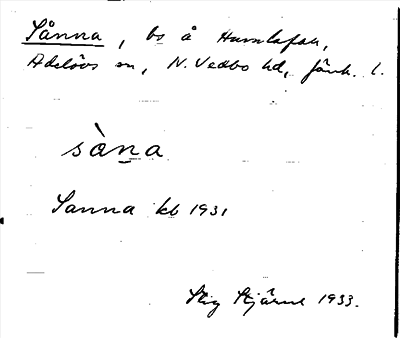 Sånna, bs å Humlafall,
Adelövs sn, N. Vedbo hd, Jönk. l.
sàna
Sanna kb 1931
Stig Stjärne 1933.